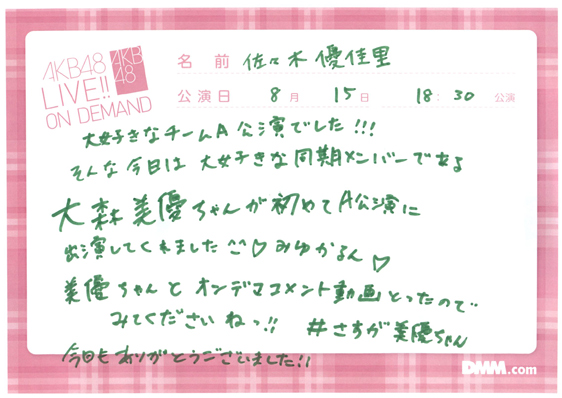 AKB48
LIVE!!
ON DEMAND
AKB
48
名前 佐々木優佳里
公演日 8月 15日 18:30 公演
大好きなチームA公演でした!!!
そんな今日は大好きな同期メンバーである
大森美優ちゃんが初めてA公演に
出演してくれました^^♡みゆかるん♡
美優ちゃんとオンデマコメント動画とったので
みてくださいねっ!! #さちが美優ちゃん
今日もありがとうございました!!
DMM.com